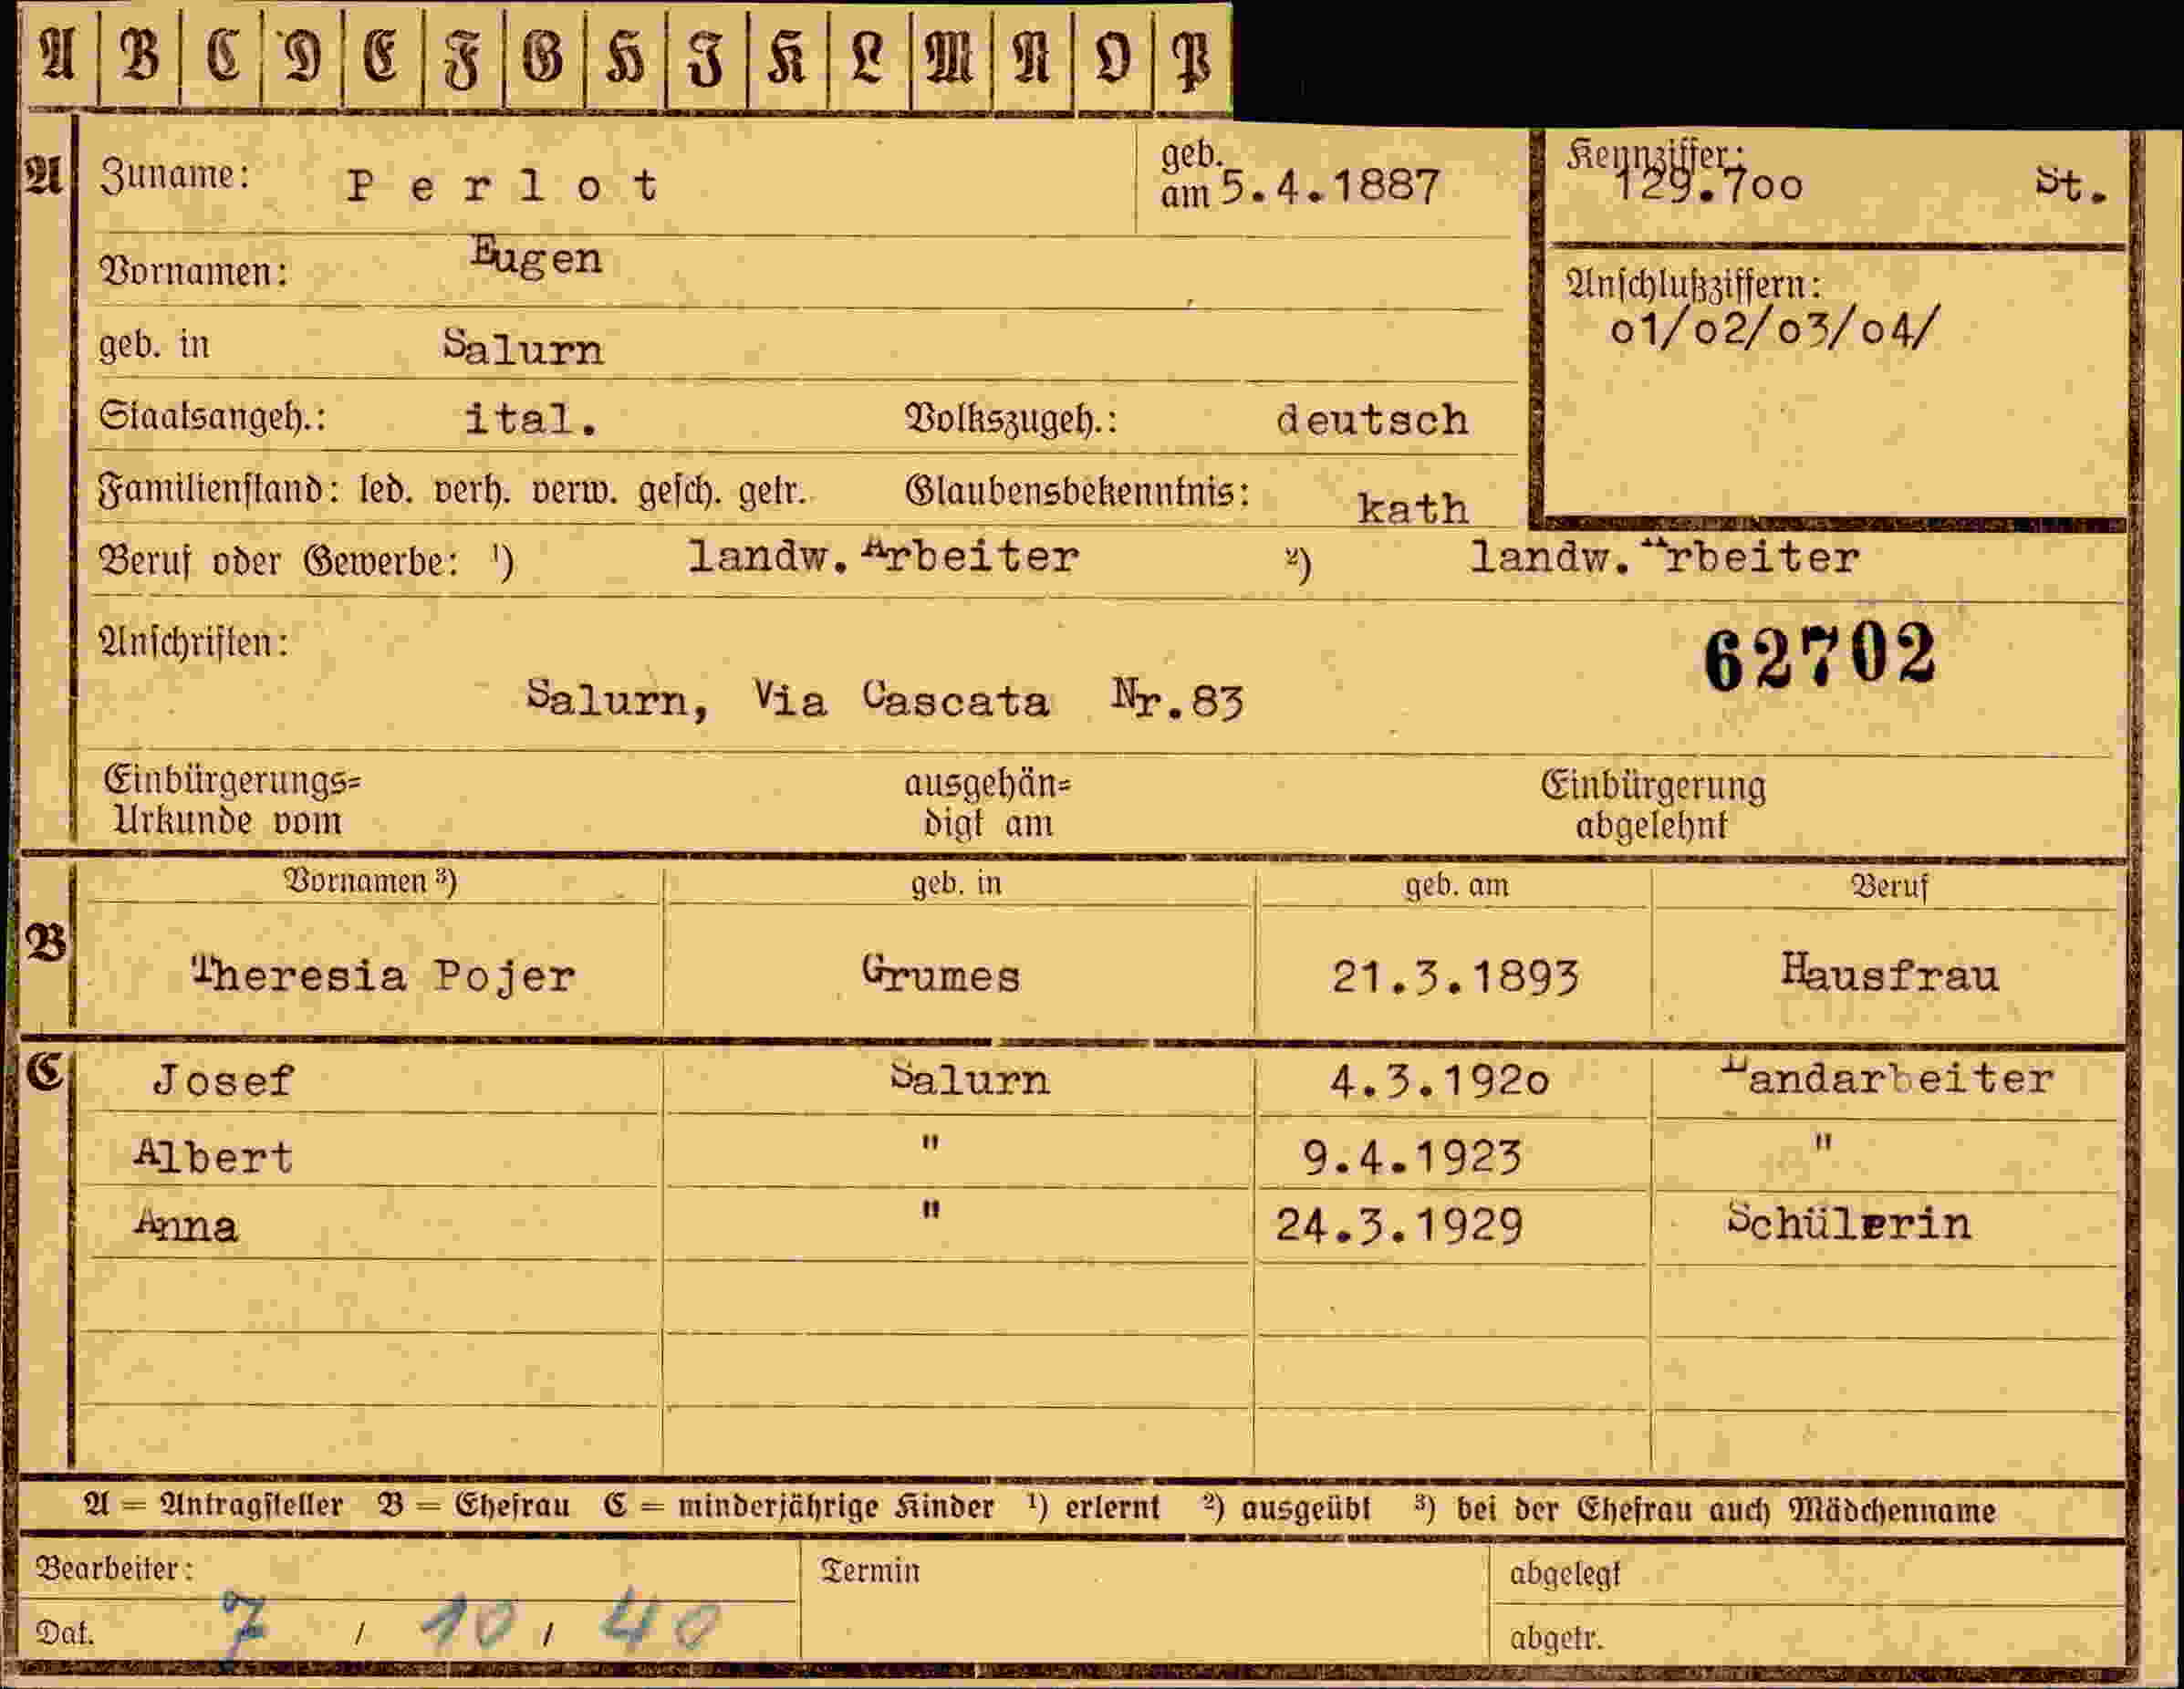 A B C D E F G H J K L M N O P
A Zuname: Perlot geb. am 5.4.1887 Kennziffer: 129.700 St.
Vornamen: Eugen
Anschlußziffern:
01/02/03/04/
geb. in Salurn
Staatsangeh.: ital. Volkszugeh.: deutsch
Familienstand: led. verh. verw. gesch. getr. Glaubensbekenntnis: kath
Beruf oder Gewerbe: ¹) landw. Arbeiter ²) landw. Arbeiter
Anschriften: 62702
Salurn, Via Cascata Nr.83
Einbürgerungs= ausgehän= Einbürgerung
Urkunde vom digt am abgelehnt
Vornamen ³) geb. in geb. am Beruf
B Theresia Pojer Grumes 21.3.1893 Hausfrau
C Josef Salurn 4.3.1920 Landarbeiter
Albert " 9.4.1923 "
Anna " 24.3.1929 Schülerin
A = Antragsteller B = Ehefrau C = minderjährige Kinder ¹) erlernt ²) ausgeübt ³) bei der Ehefrau auch Mädchenname
Bearbeiter: Termin abgelegt
Dat. 7 / 10 / 40 abgetr.